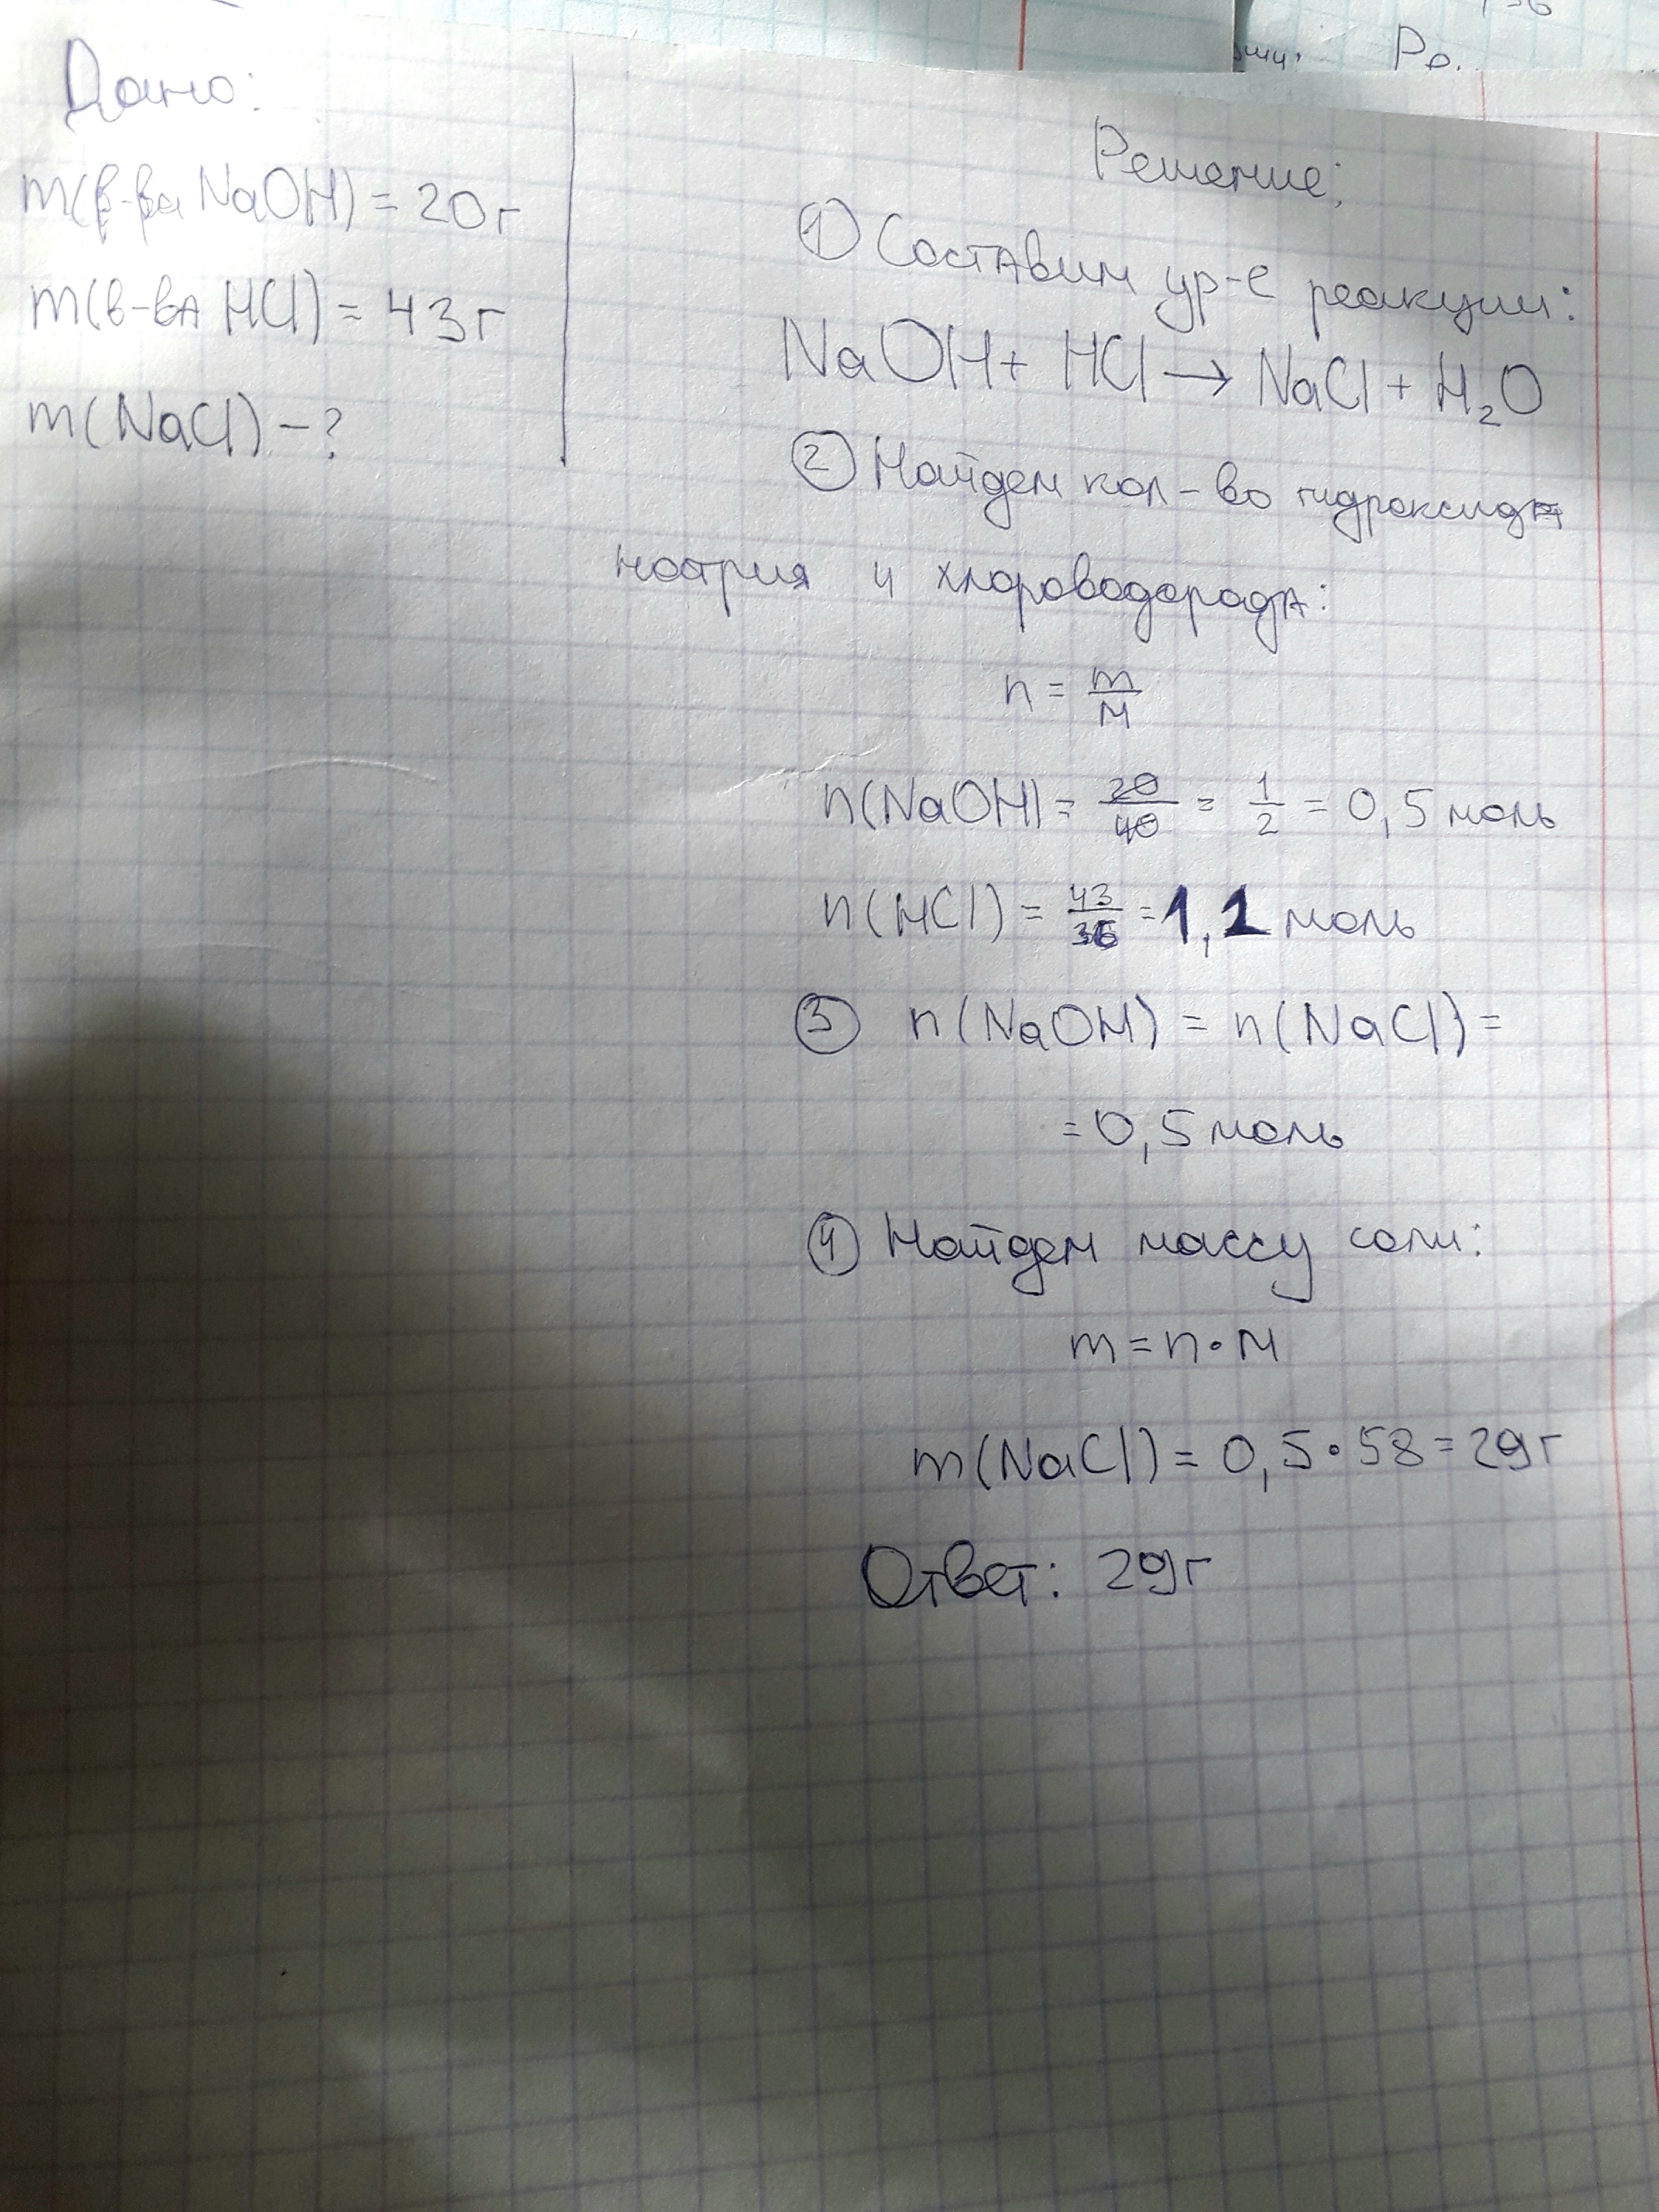 Ро.
Дано:
m(в-ва NaOH) = 20г
m(в-ва HCl) = 43г
m(NaCl) - ?
Решение:
① Составим ур-е реакции:
NaOH + HCl → NaCl + H₂O
② Найдем кол-во гидроксида
натрия и хлороводорода:
n = m/M
n(NaOH) = 20/40 = 1/2 = 0,5 моль
n(HCl) = 43/36 = 1,1 моль
③ n(NaOH) = n(NaCl) =
= 0,5 моль
④ Найдем массу соли:
m = n • M
m(NaCl) = 0,5 • 58 = 29г
Ответ: 29г